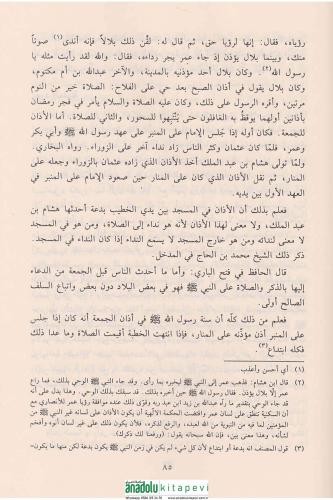 رؤياه، فقال: إنها لرؤيا حق، ثم قال له: لقّن ذلك بلالاً فإنه أندى(١) صوتاً
منك، وبينما بلال يؤذن إذ جاء عمر يجر رداءه، فقال: والله لقد رأيت مثله يا
رسول الله(٢). وكان بلال أحد مؤذنيه بالمدينة، والآخر عبدالله بن أم مكتوم،
وكان بلال يقول في أذان الصبح بعد حي على الفلاح: الصلاة خير من النوم
مرتين، وأقره الرسول على ذلك، وكان عليه الصلاة والسلام يأمر في فجر رمضان
بأذانين أولهما يوقظ به الغافلون حتى يتنبهوا للسحور، والثاني للصلاة. أما الأذان
للجمعة. فكان أوله إذا جلس الإمام على المنبر على عهد رسول الله ﷺ وأبي بكر
وعمر، فلمّا كان عثمان وكثر الناس زاد نداء آخر على الزوراء. رواه البخاري.
ولمّا تولى هشام بن عبد الملك أخذ الأذان الذي زاده عثمان بالزوراء وجعله على
المنار، ثم نقل الأذان الذي كان على المنار حين صعود الإمام على المنبر في
العهد الأول بين يديه.
فعلم بذلك أن الأذان في المسجد بين يدي الخطيب بدعة أحدثها هشام بن
عبد الملك، ولا معنى لهذا الأذان لأنه هو نداء إلى الصلاة، ومن هو في المسجد
لا معنى لندائه ومن هو خارج المسجد لا يسمع النداء إذا كان النداء في المسجد.
ذكر ذلك الشيخ محمد بن الحاج في المدخل.
قال الحافظ في فتح الباري: وأما ما أحدث الناس قبل الجمعة من الدعاء
إليها بالذكر والصلاة على النبي ﷺ فهو في بعض البلاد دون بعض واتباع السلف
الصالح أولى.
فعلم من ذلك كله أن سنة رسول الله ﷺ في أذان الجمعة أنه كان إذا جلس
على المنبر أذن مؤذنه على المنار، فإذا انتهت الخطبة أقيمت الصلاة وما عدا ذلك
فكله ابتداع(٣).
(١) أي أحسن وأعذب
(٢) قال ابن هشام: فذهب عمر إلى النبي ﷺ ليخبره بما رأى. وقد جاء النبي ﷺ الوحي بذلك، فما راع
عمر إلّا بلال يؤذن. فقال رسول الله ﷺ حين أخبره بذلك. قد سبقك بذلك الوحي. وهذا يدل على أنه
(٣) قول المصنف انه بدعة أو ابتداع لأن كل شيء لم يكن في زمن النبي ﷺ يكون بدعة لكن منها ما يكون=
٨٥
anadolukitapevi